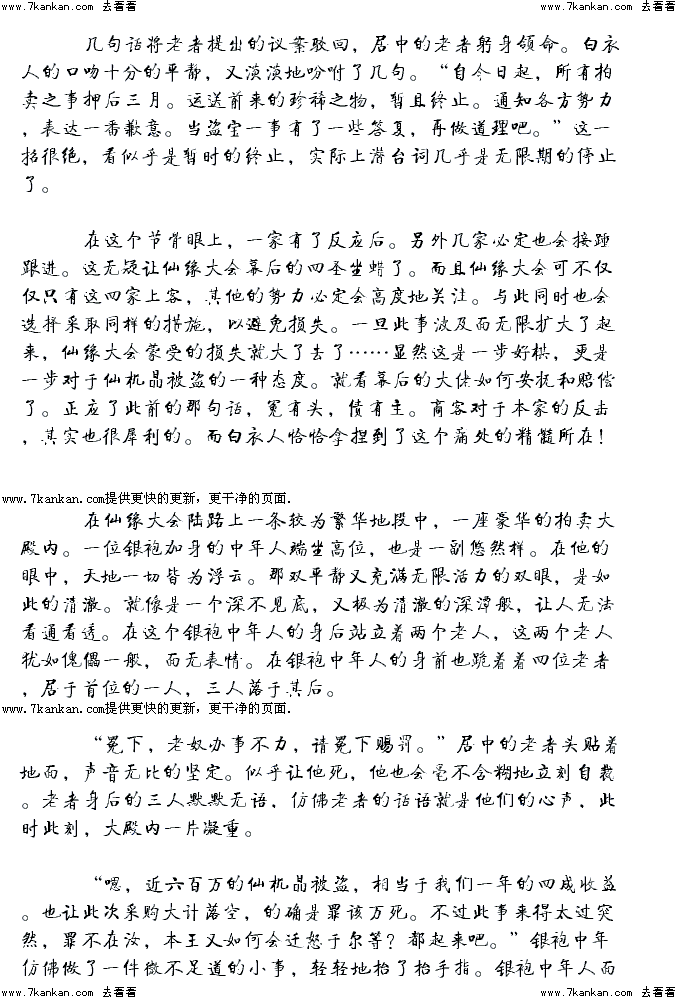 www.7kankan.com 去看看 www.7kankan.com 去看看
几句话将老者提出的议案驳回，居中的老者躬身领命。白衣
人的口吻十分的平静，又淡淡地吩咐了几句。“自今日起，所有拍
卖之事押后三月。运送前来的珍稀之物，暂且终止。通知各方势力
，表达一番歉意。当盗宝一事有了一些答复，再做道理吧。”这一
招很绝，看似乎是暂时的终止，实际上潜台词几乎是无限期的停止
了。
在这个节骨眼上，一家有了反应后。另外几家必定也会接踵
跟进。这无疑让仙缘大会幕后的四圣坐蜡了。而且仙缘大会可不仅
仅只有这四家上客，其他的势力必定会高度地关注。与此同时也会
选择采取同样的措施，以避免损失。一旦此事波及面无限扩大了起
来，仙缘大会蒙受的损失就大了去了……显然这是一步好棋，更是
一步对于仙机晶被盗的一种态度。就看幕后的大佬如何安抚和赔偿
了。正应了此前的那句话，冤有头，债有主。商客对于本家的反击
，其实也很犀利的。而白衣人恰恰拿捏到了这个痛处的精髓所在！
www.7kankan.com提供更快的更新，更干净的页面.
在仙缘大会陆路上一条较为繁华地段中，一座豪华的拍卖大
殿内。一位银袍加身的中年人端坐高位，也是一副悠然样。在他的
眼中，天地一切皆为浮云。那双平静又充满无限活力的双眼，是如
此的清澈。就像是一个深不见底，又极为清澈的深潭般，让人无法
看通看透。在这个银袍中年人的身后站立着两个老人，这两个老人
犹如傀儡一般，面无表情。在银袍中年人的身前也跪着着四位老者
，居于首位的一人，三人落于其后。
www.7kankan.com提供更快的更新，更干净的页面.
“冕下，老奴办事不力，请冕下赐罚。”居中的老者头贴着
地面，声音无比的坚定。似乎让他死，他也会毫不含糊地立刻自裁
。老者身后的三人默默无语，仿佛老者的话语就是他们的心声，此
时此刻，大殿内一片凝重。
“嗯，近六百万的仙机晶被盗，相当于我们一年的四成收益
。也让此次采购大计落空，的确是罪该万死。不过此事来得太过突
然，罪不在汝，本王又如何会迁怒于尔等？都起来吧。”银袍中年
仿佛做了一件微不足道的小事，轻轻地抬了抬手指。银袍中年人面
www.7kankan.com 去看看 www.7kankan.com 去看看